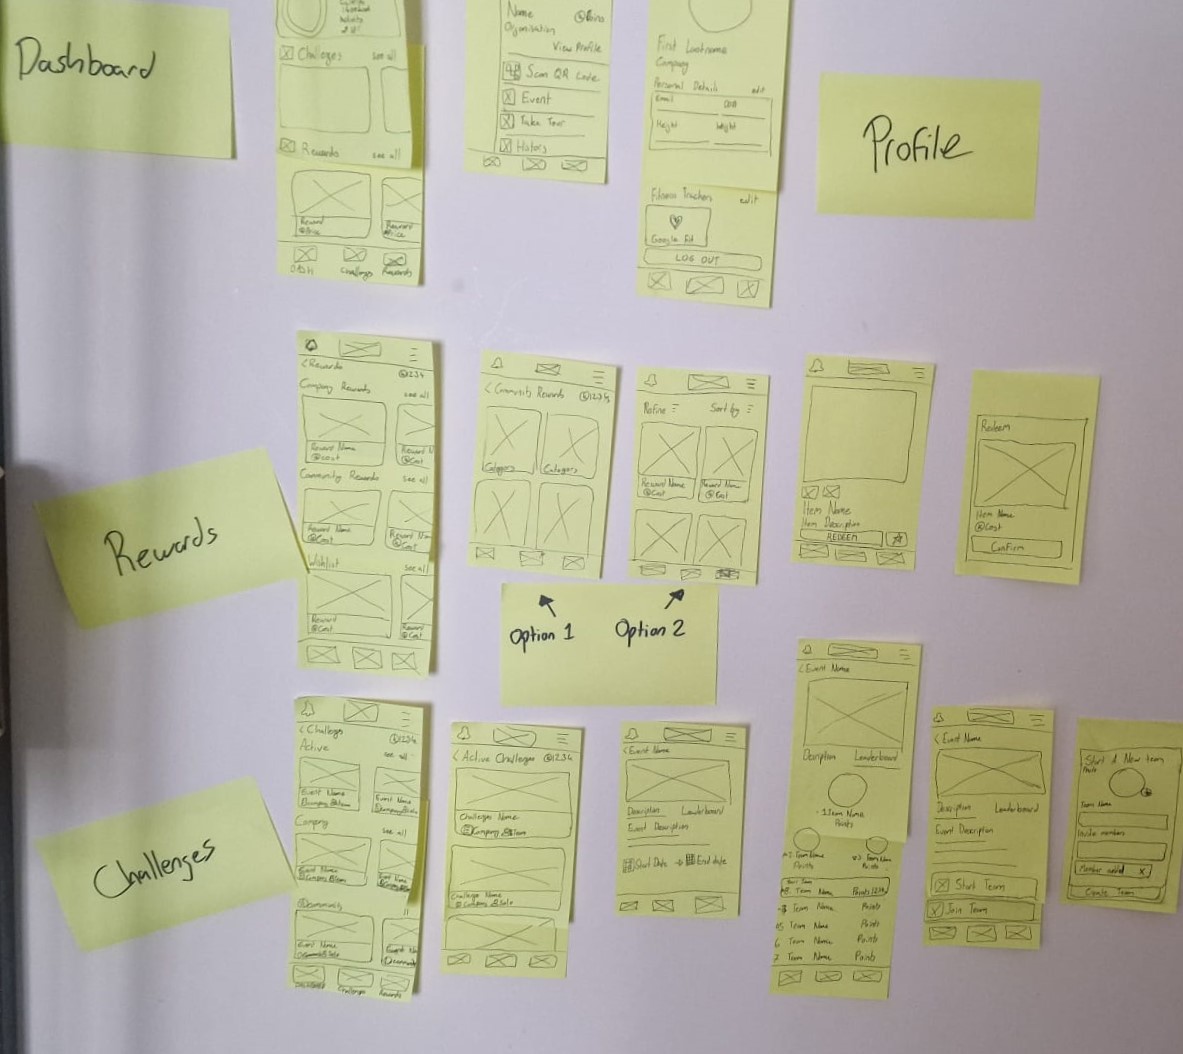 Dashboard
Challenges see all
Rewards see all
Reward
@Price
Reward
Challenges Rewards
Name @Coins
Organisation
View Profile
Scan QR Code
Event
Take Tour
History
First Lastname
Company
Personal Details edit
Email DOB
Height Weight
Fitness Trackers edit
Google Fit
LOG OUT
Profile
Rewards
< Rewards
@1234
Company Rewards see all
Reward Name
@Cost
Reward N
@Cost
Community Rewards see all
Reward Name
@Cost
Reward Nam
@Cost
Wishlist see all
Reward
@Cost
Reward
@Cost
< Community Rewards @1234
Category
Category
Refine Sort by
Reward Name
@Cost
Reward Nam
@Cost
Item Name
Item Description
REDEEM
Redeem
Item Name
@Cost
Confirm
Option 1 Option 2
Challenges
< Challenges
@1234
Active see all
Event Name
Event Name
Company see all
Event Name
Event Name
Community
Event Name
Event Na
Challenges Rewards
< Active Challenges @1234
Challenge Name
Company Team
Challenge Name
Company Solo
< Event Name
Description Leaderboard
Event Description
Start Date → End date
< Event Name
Description Leaderboard
1 Team Name
Points
#2 Team Name
Points
#3 Team Name
Points
Your Team
Team Name Points 1234
Team Name Points
Team Name Points
6 Team Name Points
7 Team Name Points
< Event Name
Description Leaderboard
Event Description
Start Team
Join Team
Start A New team
Photo
Team Name
Invite members
Member added X
Create Team